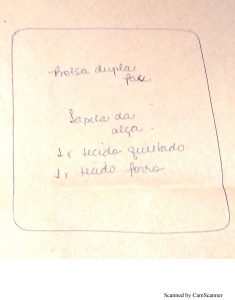 Bolsa dupla
face
Lapela da
alça.
1x tecido quiltado
1x tecido forro
Scanned by CamScanner